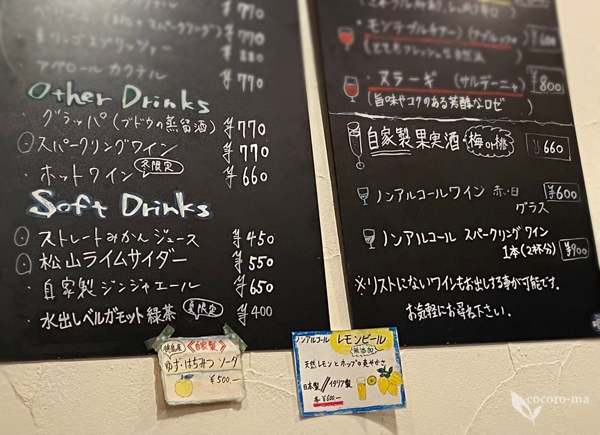 ¥770
スパークリング) ¥770
リンゴスプリッツァー
¥880
アペロール カクテル ¥770
Other Drinks
・グラッパ(ブドウの蒸留酒) ¥770
スパークリングワイン ¥770
・ホットワイン 冬限定 ¥660
Soft Drinks
ストレートみかんジュース ¥450
松山ライムサイダー ¥550
・自家製ジンジャエール ¥650
・水出しベルガモット緑茶 夏限定 ¥400
《自家製》
ゆず・はちみつ ソーダ
¥500―
ノンアルコール レモンビール
無添加
天然レモンとホップの爽やかさ
日本製/イタリア製
¥600―
¥600
(とてもフレッシュな
・スラーギ (サルデーニャ) ¥800
(旨味やコクのある芳醇なロゼ )
自家製果実酒・梅or桃 ¥660
ノンアルコールワイン 赤・白 ¥600
グラス
ノンアルコール スパークリング ワイン
1本(2杯分) ¥900
※リストにないワインもお出しする事が可能です。
お気軽にお尋ね下さい。
cocoro-ma